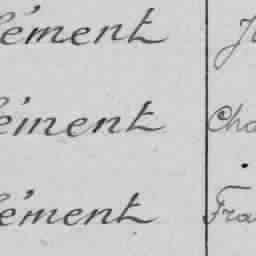 lément
lément Cha
lément Fra